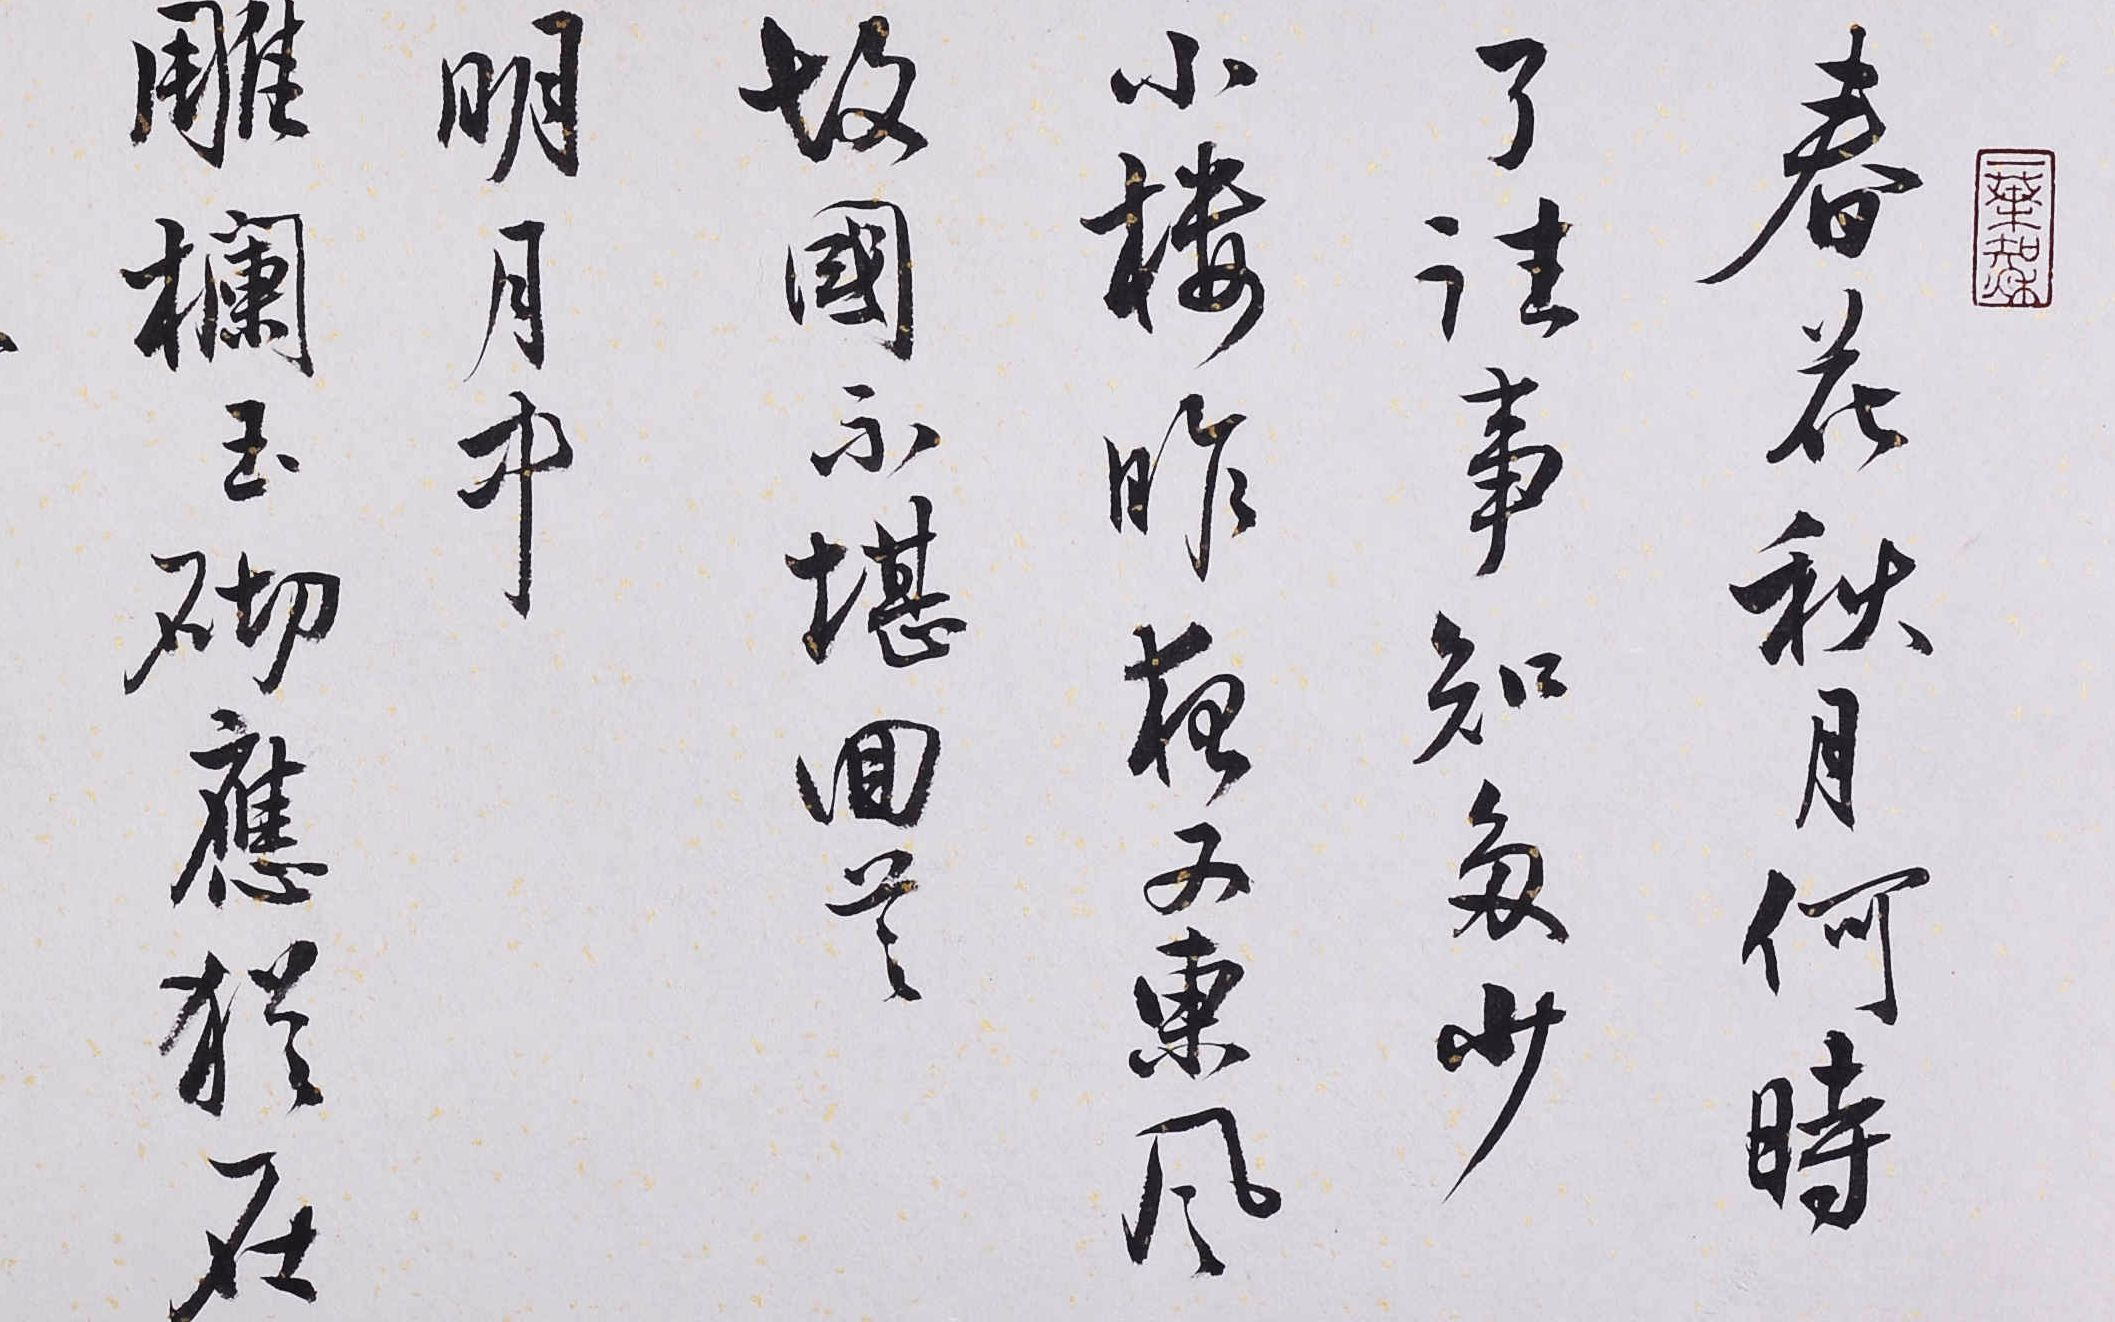 一葉知秋
春花秋月何時
了往事知多少
小楼昨夜又東風
故國不堪回首
明月中
雕欄玉砌應猶在